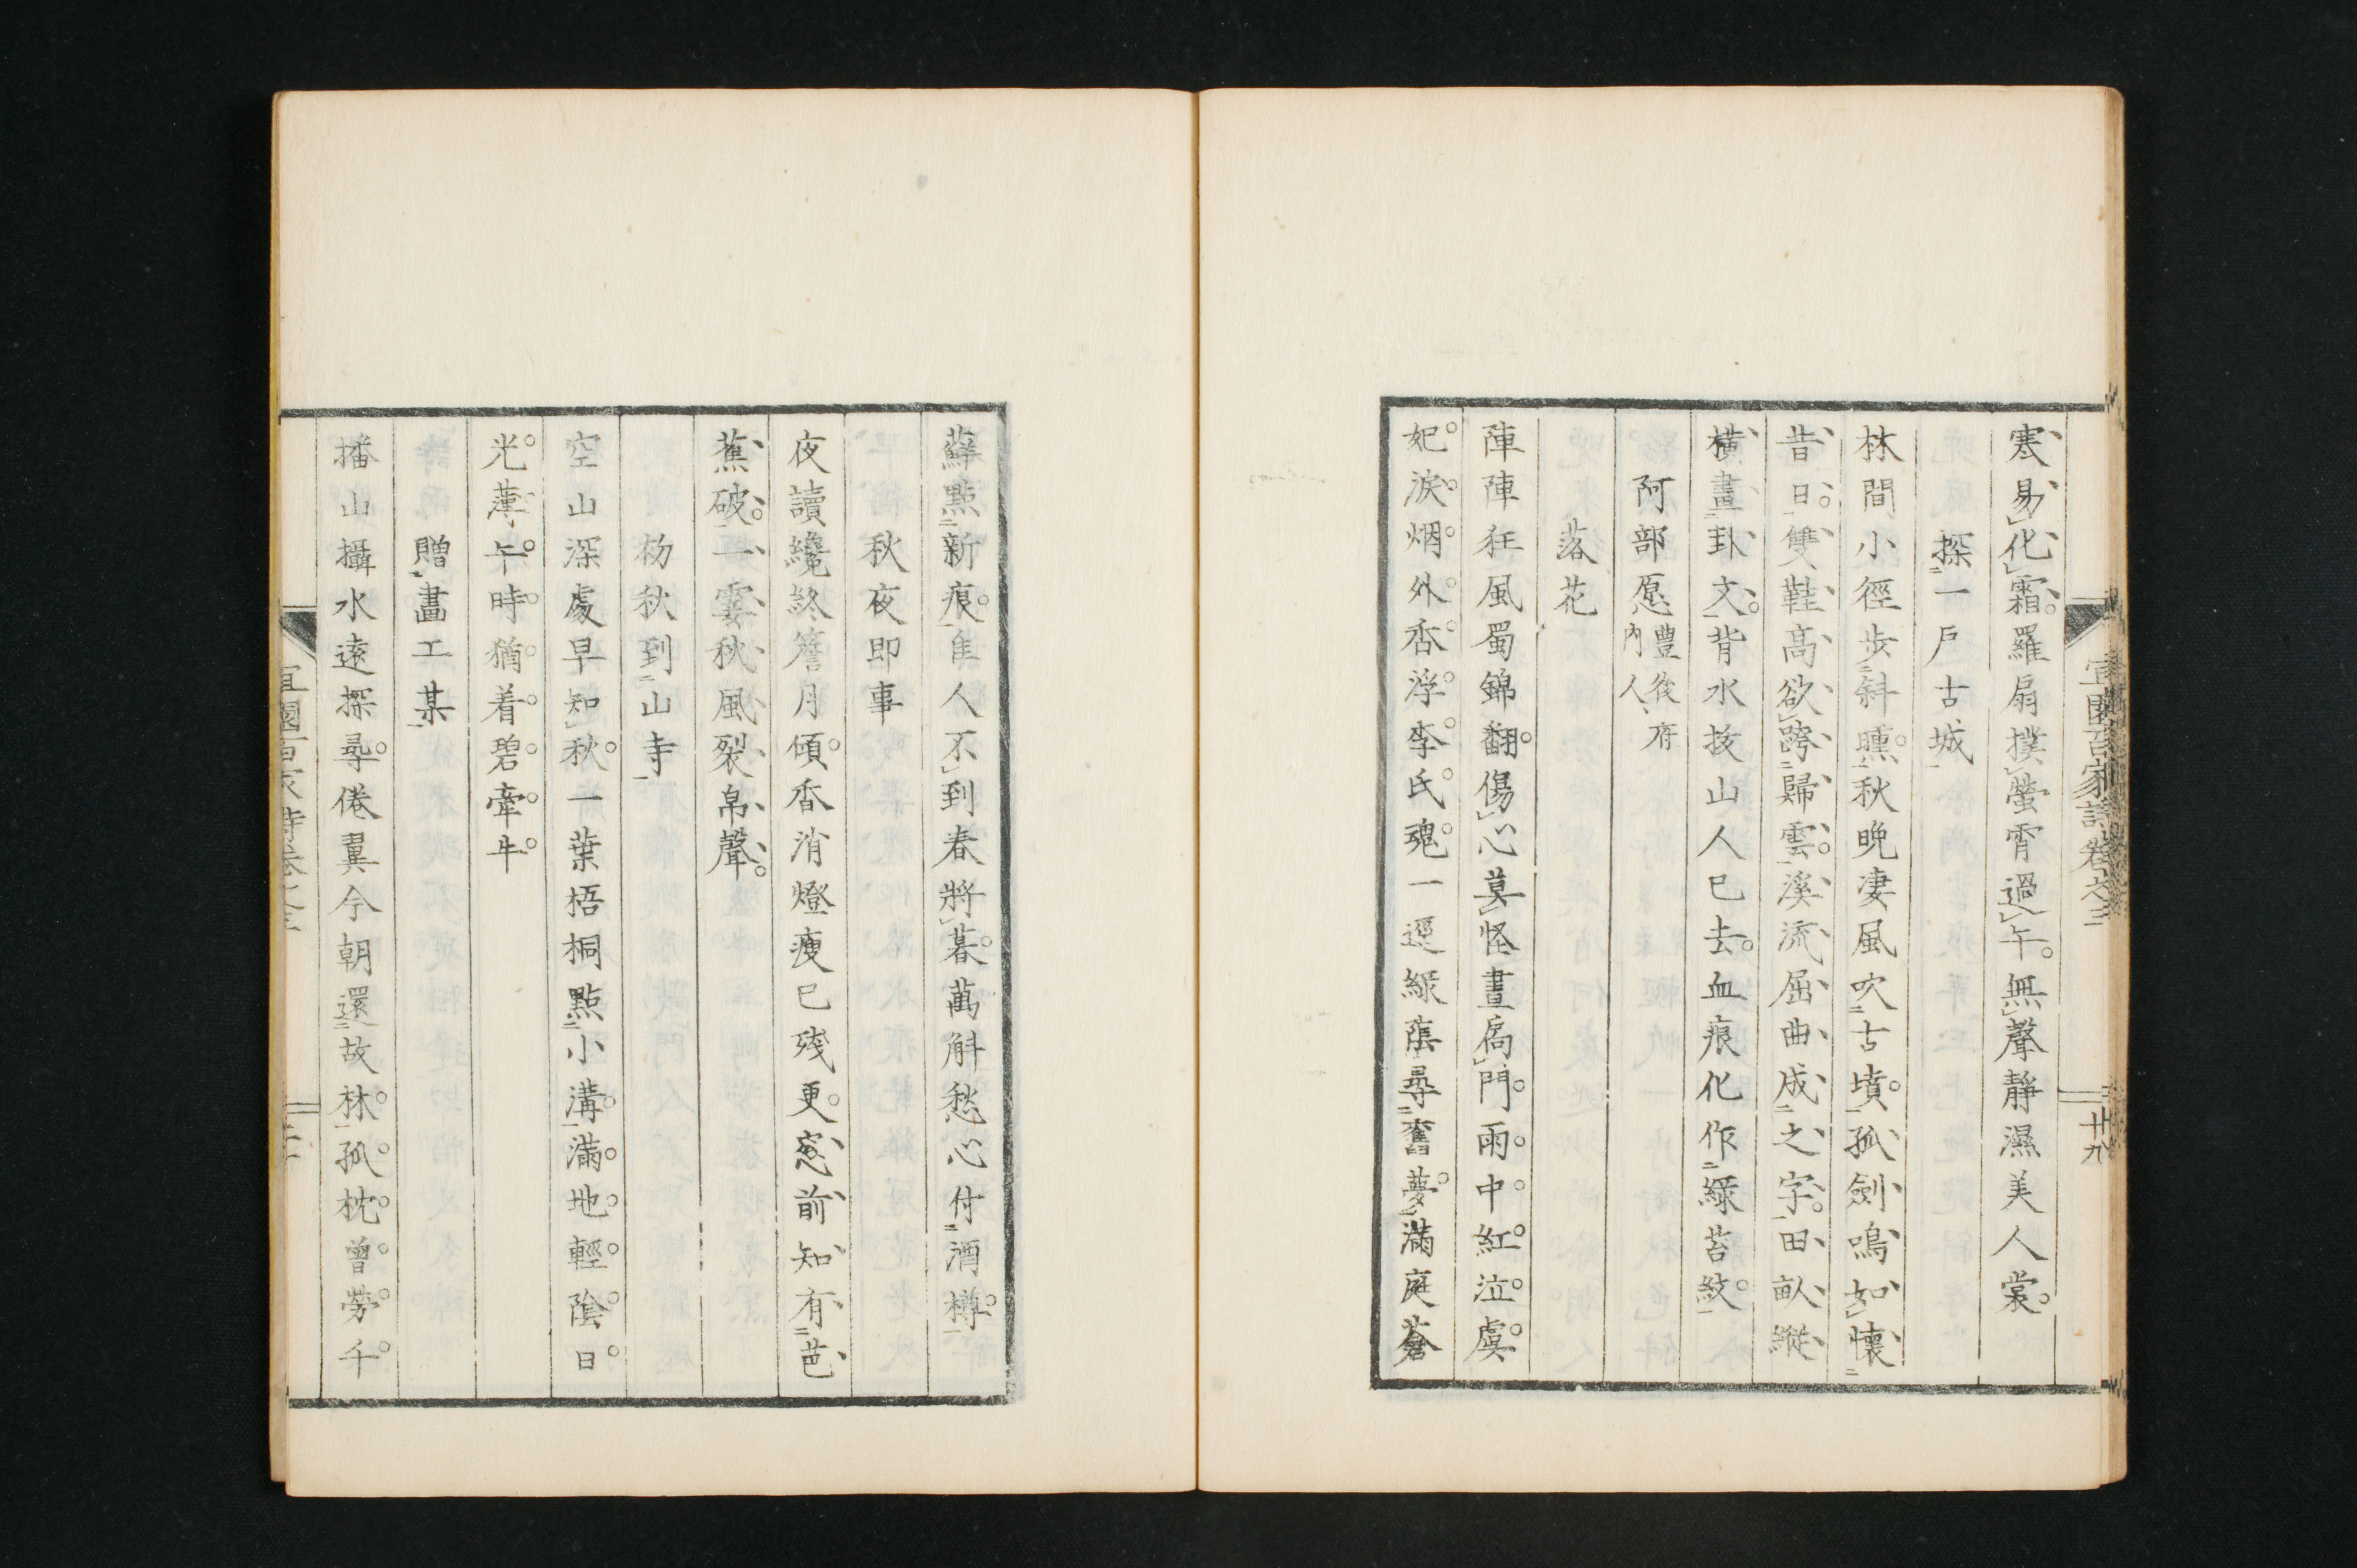 宜園百家詩卷之三
廿九
寒易化霜羅扇撲螢宵過午無聲靜濕美人裳
探一戸古城
林間小徑歩斜曛秋晩凄風吹古墳孤劍鳴如懷
昔日雙鞋高欲跨歸雲溪流屈曲成之字田畝縱
橫畫卦文背水拔山人已去血痕化作綠苔紋
阿部愿豊後府内人
落花
陣陣狂風蜀錦翻傷心莫怪晝扃門雨中紅泣虞
妃淚烟外香浮李氏魂一逕綠蔭尋舊夢滿庭蒼
蘚點新痕隹人不到春將暮萬斛愁心付酒樽
秋夜即事
夜讀纔終簷月傾香消燈瘦已殘更窓前知有芭
蕉破一霎秋風裂帛聲
初秋到山寺
空山深處早知秋一葉梧桐點小溝滿地輕陰日
光薄午時猶着碧牽牛
贈畫工某
播山攝水遠探尋倦翼今朝還故林孤枕曾勞千
宜園百家詩卷之三